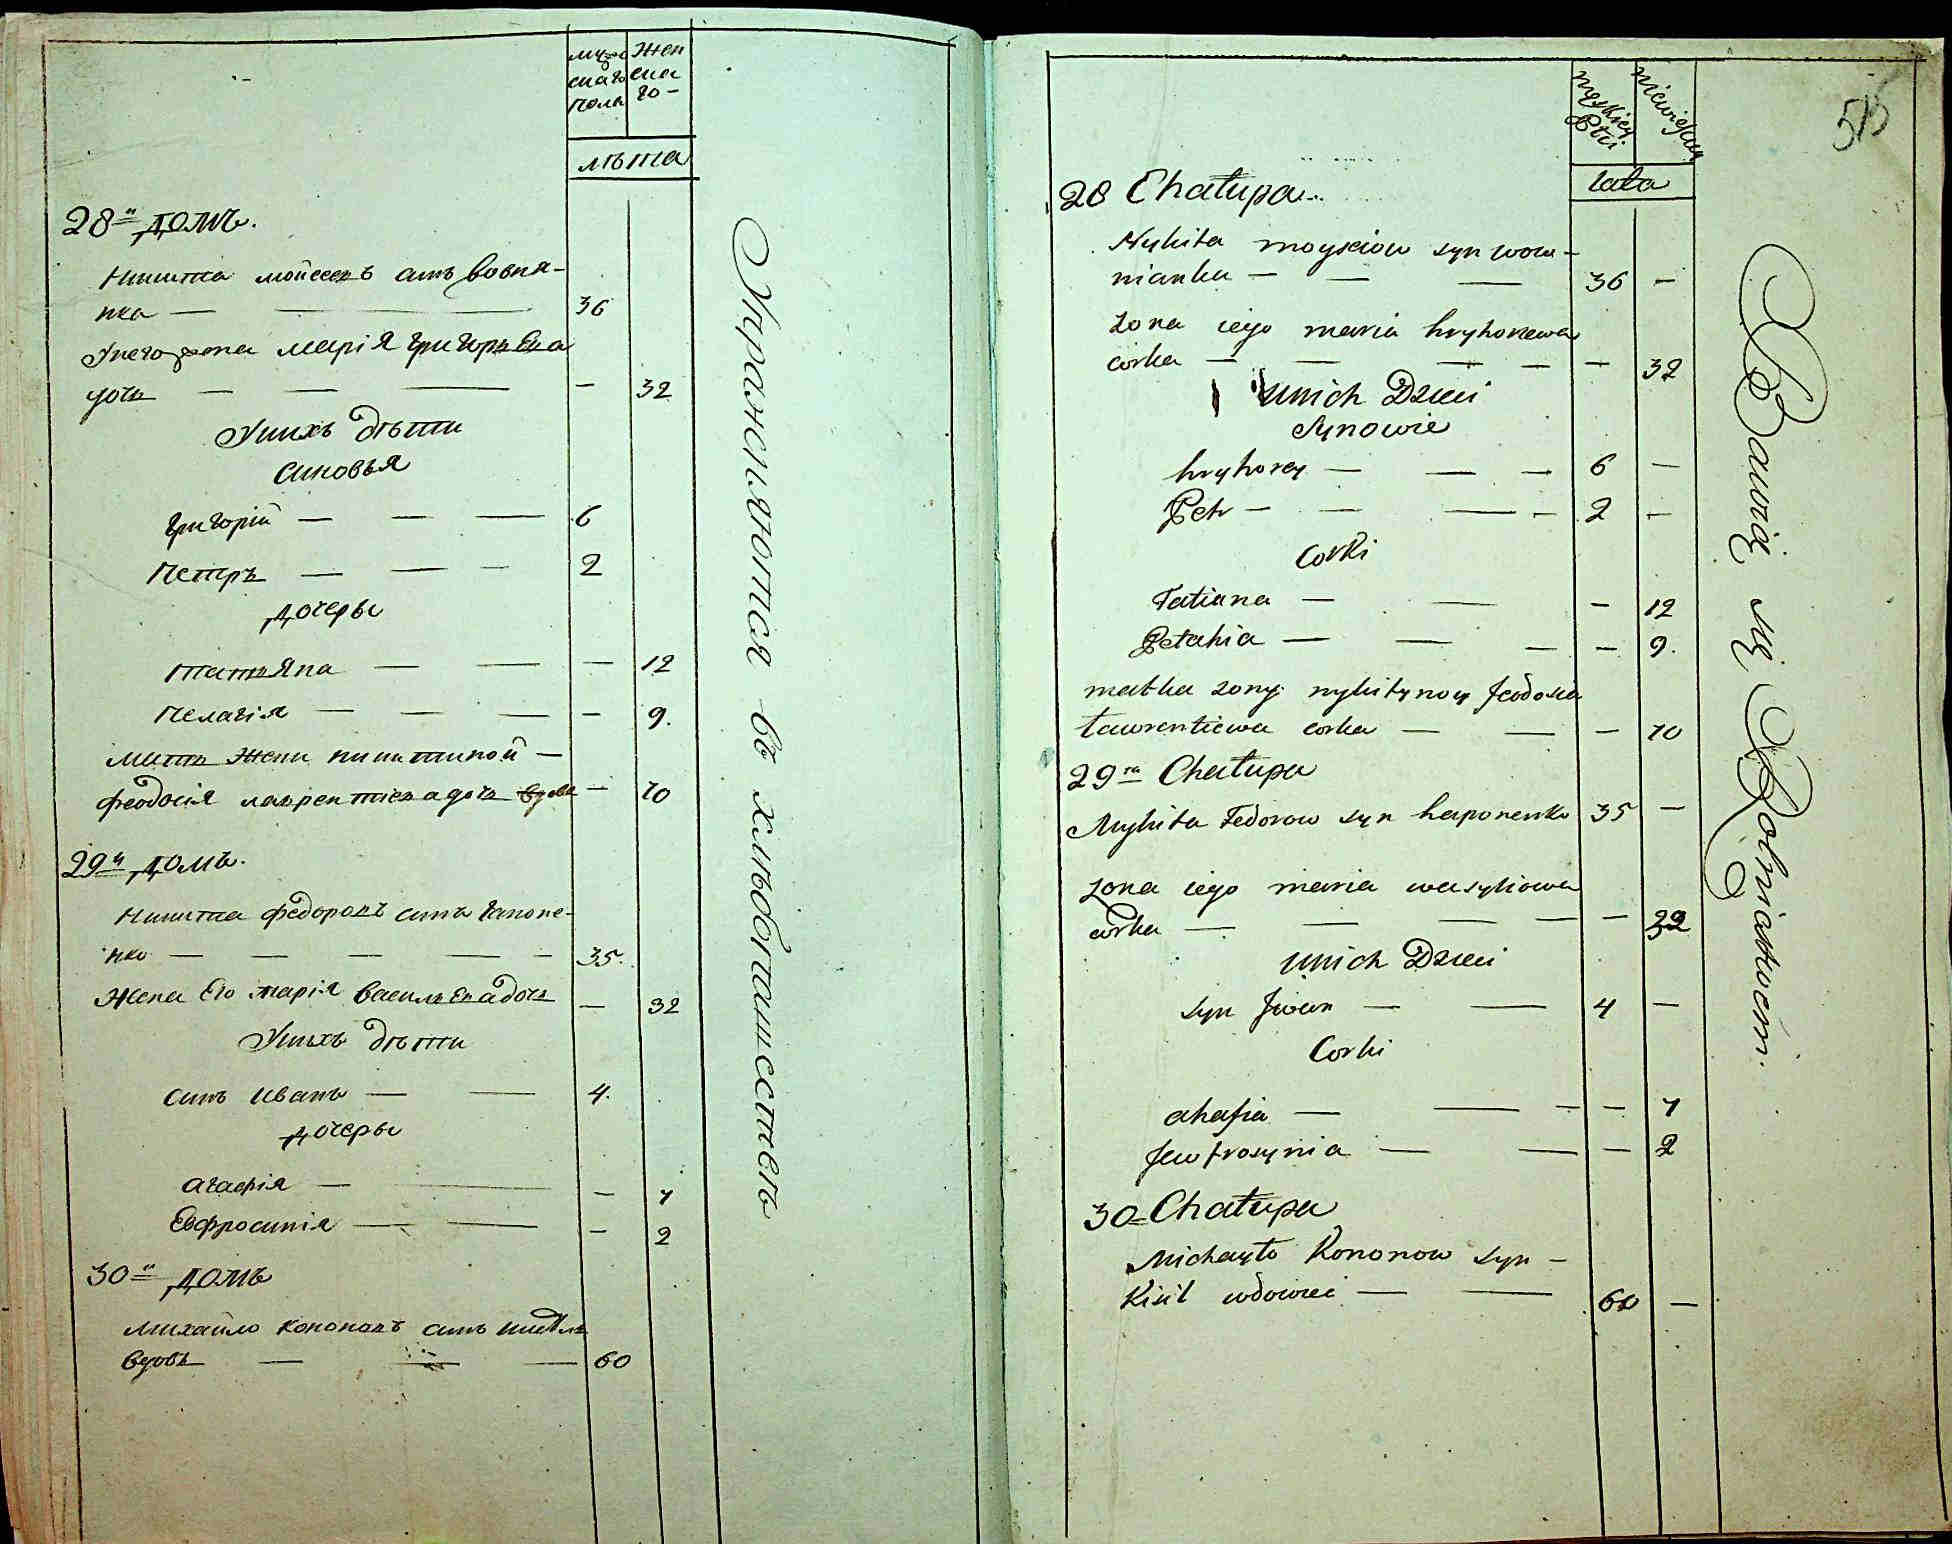 мужскаго пола
женскаго
лѣта
28й домъ.
Никита мойсеевъ сынъ вовня-
нка — 36
Унего жена марія григорьева
дочь — 32
Унихъ дѣти
синовья
григорій — 6
Петръ — 2
дочеры
татьяна — 12
Пелагія — 9.
мать жены никитиной —
феодосія лаврентіева дочь вдова — 70
29й домъ.
Никита федоровъ сынъ гапоне-
нко — 35.
жена Его марія васильева дочь — 32
Унихъ дѣти
сынъ иванъ — 4.
дочеры
агафія — 7
Евфросинія — 2
30й домъ
михайло кононовъ сынъ
вдовъ — 60
Упражняются въ хлѣбопашествѣ
515
męskiey Płci
niewieściey
lata
28 Chałupa
Nykita moysiow syn wow-
nianka — 36 —
zona iego maria hryhorewa
corka — 32
unich Dzieci
Synowie
hryhorey — 6 —
Petr — 2 —
Corki
Tatiana — 12
Pelahia — 9.
matka zony nykitynoy feodosia
Lawrentiewa corka — 70
29ta Chałupa
Nykita Fedorow syn haponenko 35 —
zona iego maria wasyliowa
corka — 32
unich Dzieci
syn Jwan — 4 —
Corki
ahafia — 7
Jewfrosynia — 2
30 Chałupa
Michayło Kononow syn —
Kisil wdowiec — 60 —
Bawią się Rolnictwem.